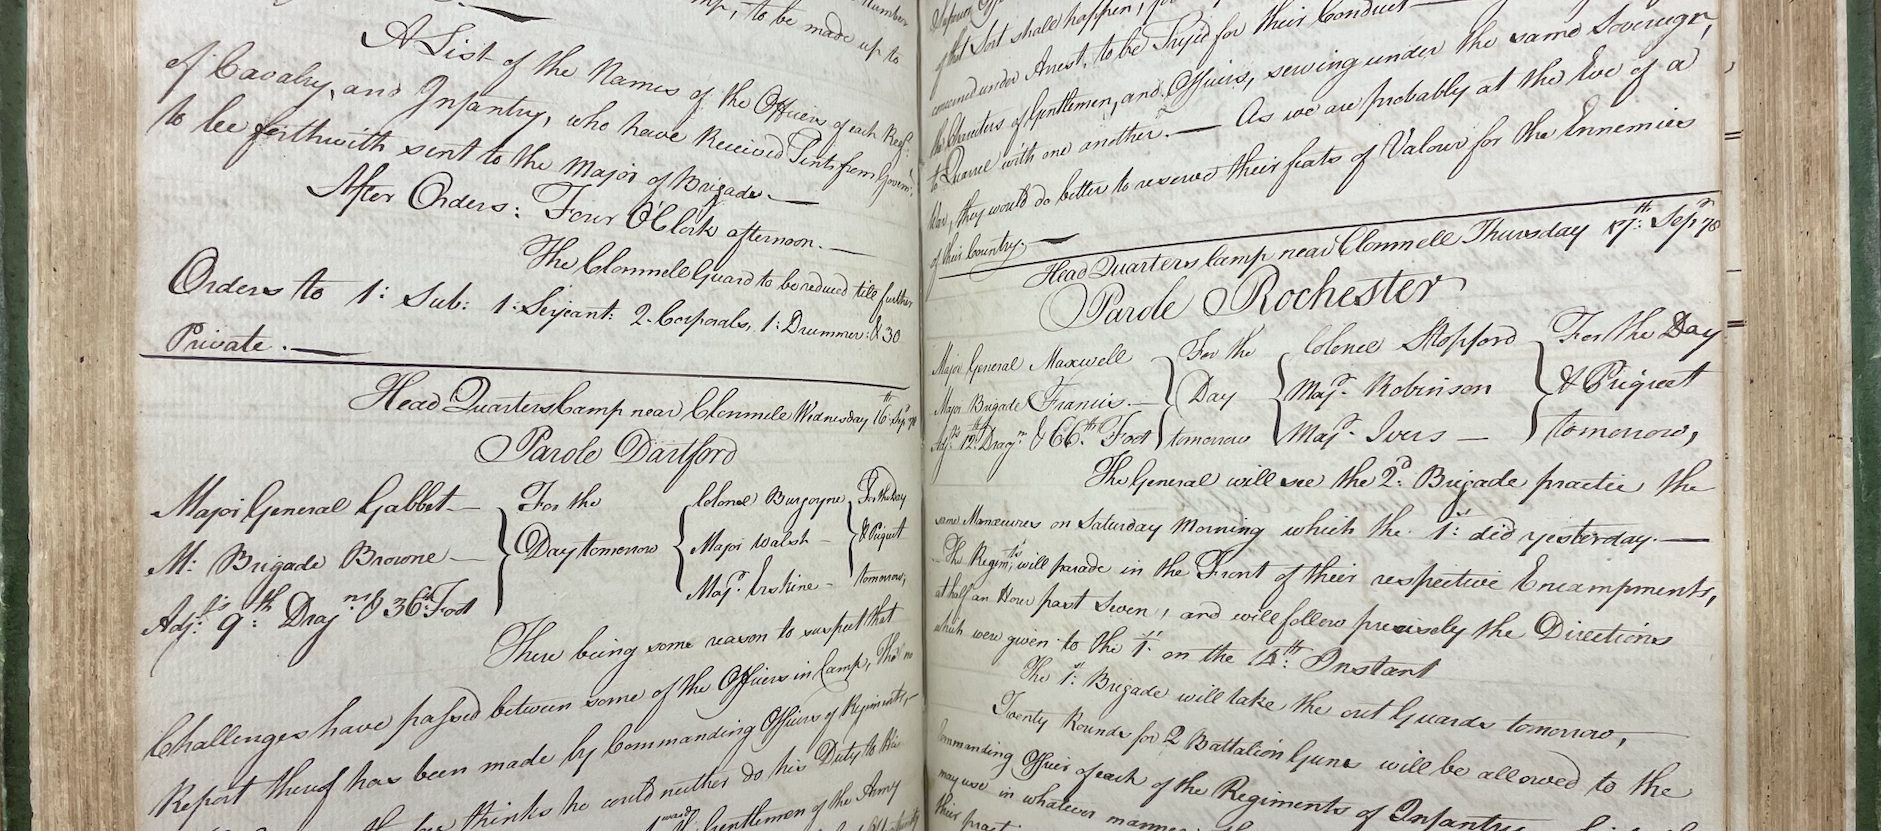 mp, to be made up to
A List of the Names of the Officers of each Regt.
of Cavalry, and Infantry, who have Received Tents from Governt.
to bee forthwith sent to the Major of Brigade.—
After Orders: Four O'Clock afternoon.—
The Clonmell Guard to be reduced till further
Orders to 1: Sub: 1: Serjeant: 2. Corporals, 1: Drummer: & 30
Private.—
Head Quarters Camp near Clonmele Wednesday 16th: Sepr 78
Parole Dartford
Major General Gabbet— } For the { Colonel Burgoyne } For the Day
M: Brigade Browne— } Day tomorrow { Major Walsh— } & Piquet
Adjts: 9th: Dragns & 36th: Foot } { Majr. Erskine— } tomorrow,
There being some reason to suspect that
Challenges have passed between some of the Officers in Camp, tho' no
Report thereof has been made by Commanding Officers of Regiments,—
thinks he could neither do his Duty to His
Gentlemen of the Army
of that Sort shall happen,
under Arrest, to be Try'd for their Conduct—
the Characters of Gentlemen, and Officers, serving under the same Sovereign,
to Quarrel with one another.— As we are probably at the Eve of a
War, they would do better to reserve their feats of Valour for the Ennemies
of their Country.—
Head Quarters Camp near Clonmell Thursday 17th: Sepr 78
Parole Rochester
Major General Maxwell } For the { Colonel Stopford } For the Day
Major Brigade Francis.— } Day { Majr. Robinson } & Piqueet
Adjts 12th: Dragns & 66th: Foot } tomorrow { Majr. Ivers— } tomorrow,
The General will see the 2d: Brigade practice the
same Manœuvres on Saturday Morning which the 1st: did yesterday.—
The Regimts: will parade in the Front of their respective Encampments,
at half an Hour past Seven, and will follow precisely the Directions
which were given to the 1st: on the 14th: Instant
The 1st: Brigade will take the out Guards tomorrow,—
Twenty Rounds for 2 Battalion Guns will be allowed to the
Commanding Officer of each of the Regiments of Infantry
may use in whatever manner
their